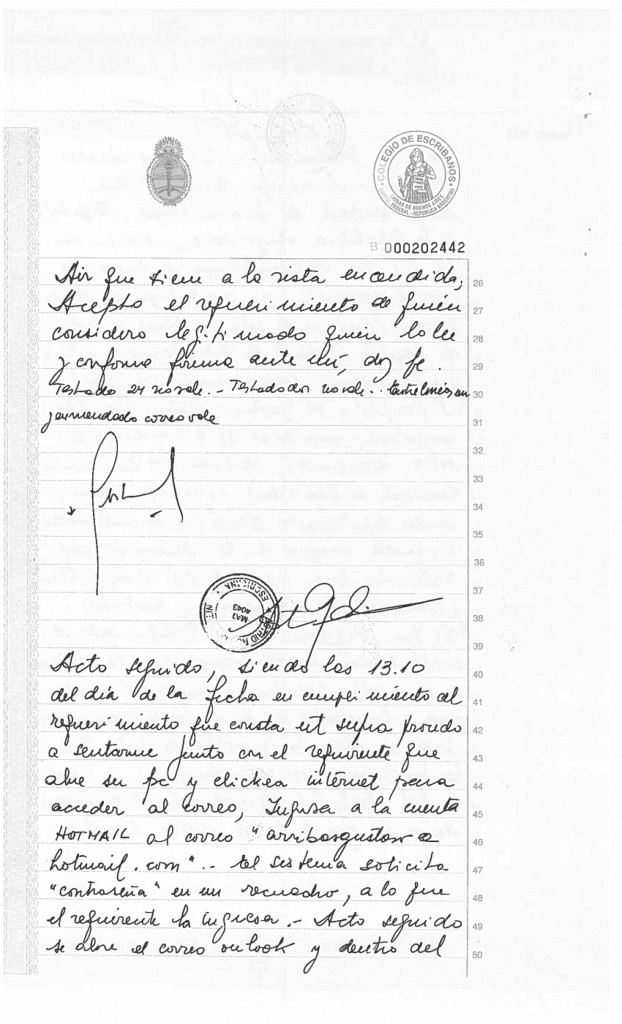 COLEGIO DE ESCRIBANOS
CAPITAL FEDERAL - REPUBLICA ARGENTINA
B 000202442
Air que tiene a la vista encendida, 26
Acepto el requerimiento de quién 27
considero legitimado quién lo lee 28
y conforme firma ante mí, doy fe. 29
Testado 24 no vale. - Testado dor no vale. - Entrelíneas un 30
y enmendado correo vale 31
32
33
34
35
36
37
38
ESCRIBANA
MAT
4043
39
Acto seguido, siendo las 13.10 40
del día de la fecha en cumplimiento al 41
requerimiento que consta ut supra procedo 42
a sentarme junto con el requirente que 43
abre su pc y clickea internet para 44
acceder al correo, Ingresa a la cuenta 45
HOTMAIL al correo "arribasgustavo@ 46
hotmail.com".- El sistema solicita 47
"contraseña" en un recuadro, a lo que 48
el requirente la ingresa.- Acto seguido 49
se abre el correo outlook y dentro del 50